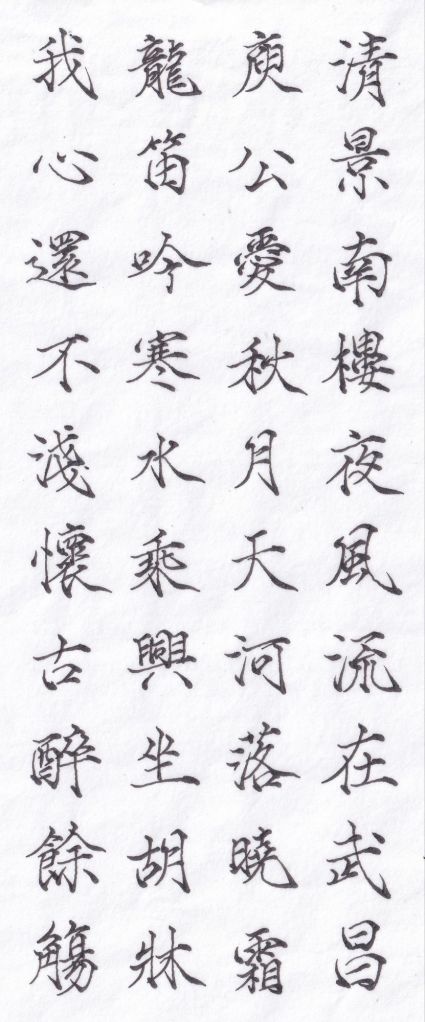 清景南樓夜風流在武昌
庾公愛秋月天河落曉霜
龍笛吟寒水乘興坐胡牀
我心還不淺懷古醉餘觴